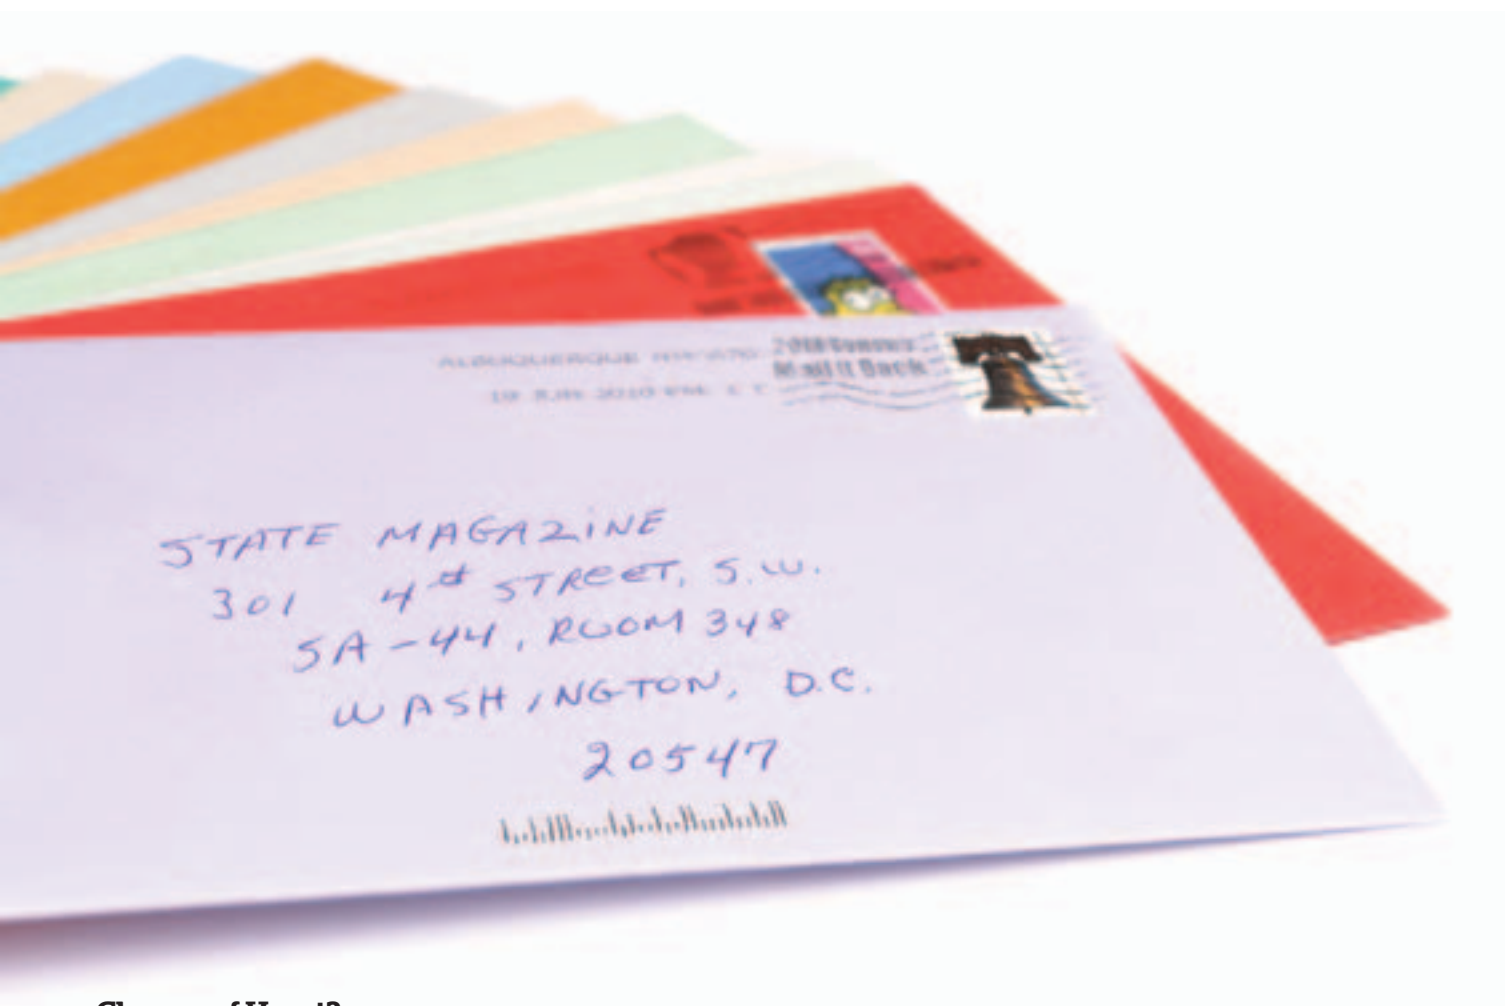 ALBUQUERQUE
Mail It Back
2010 PM
STATE MAGAZiNE
301 4th STREET, S.W.
SA-44, ROOM 348
WASHINGTON, D.C.
20547